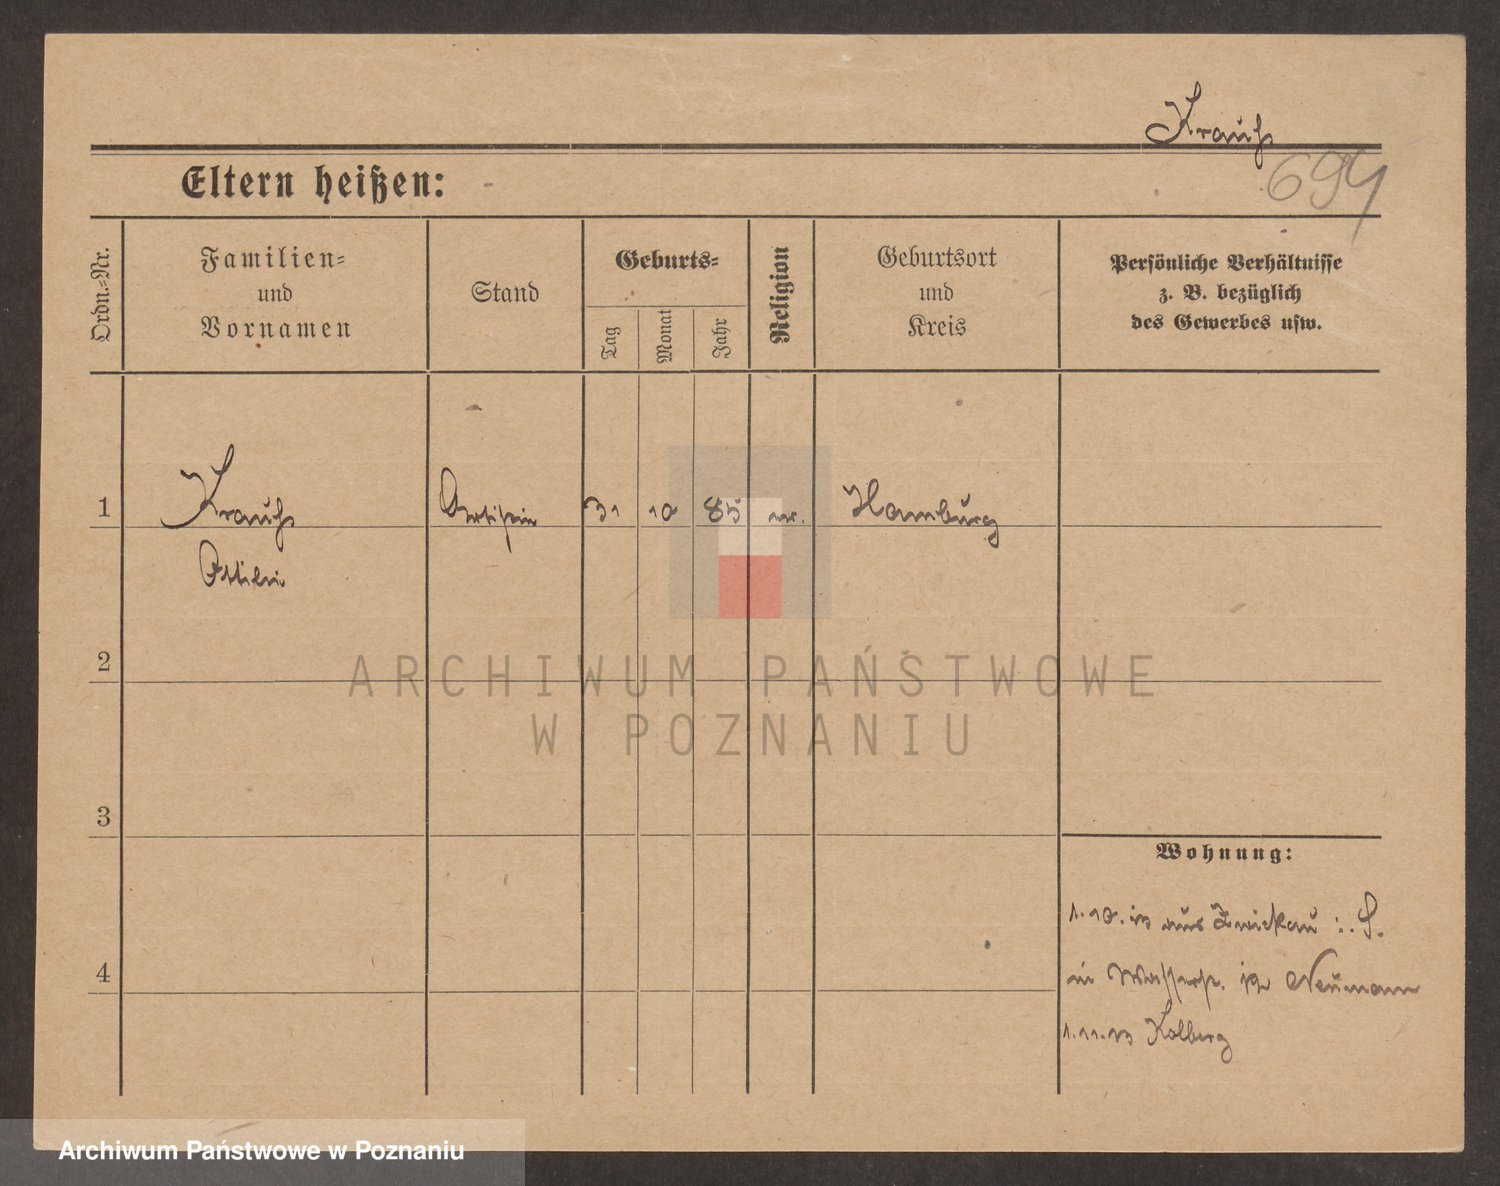 Krauß
694
Eltern heißen: -
Ordn.-Nr.
Familien-
und
Vornamen
Stand
Geburts-
Tag
Monat
Jahr
Religion
Geburtsort
und
Kreis
Persönliche Verhältnisse
z. B. bezüglich
des Gewerbes usw.
1
Krauß
Artistin
31
10
85
ev.
Hamburg
Ottilie
2
ARCHIWUM PAŃSTWOWE
W POZNANIU
3
Wohnung:
1.10.13 aus Zwickau i. S.
in Wasserstr. 12 Neumann
1.11.13 Kolberg
4
Archiwum Państwowe w Poznaniu